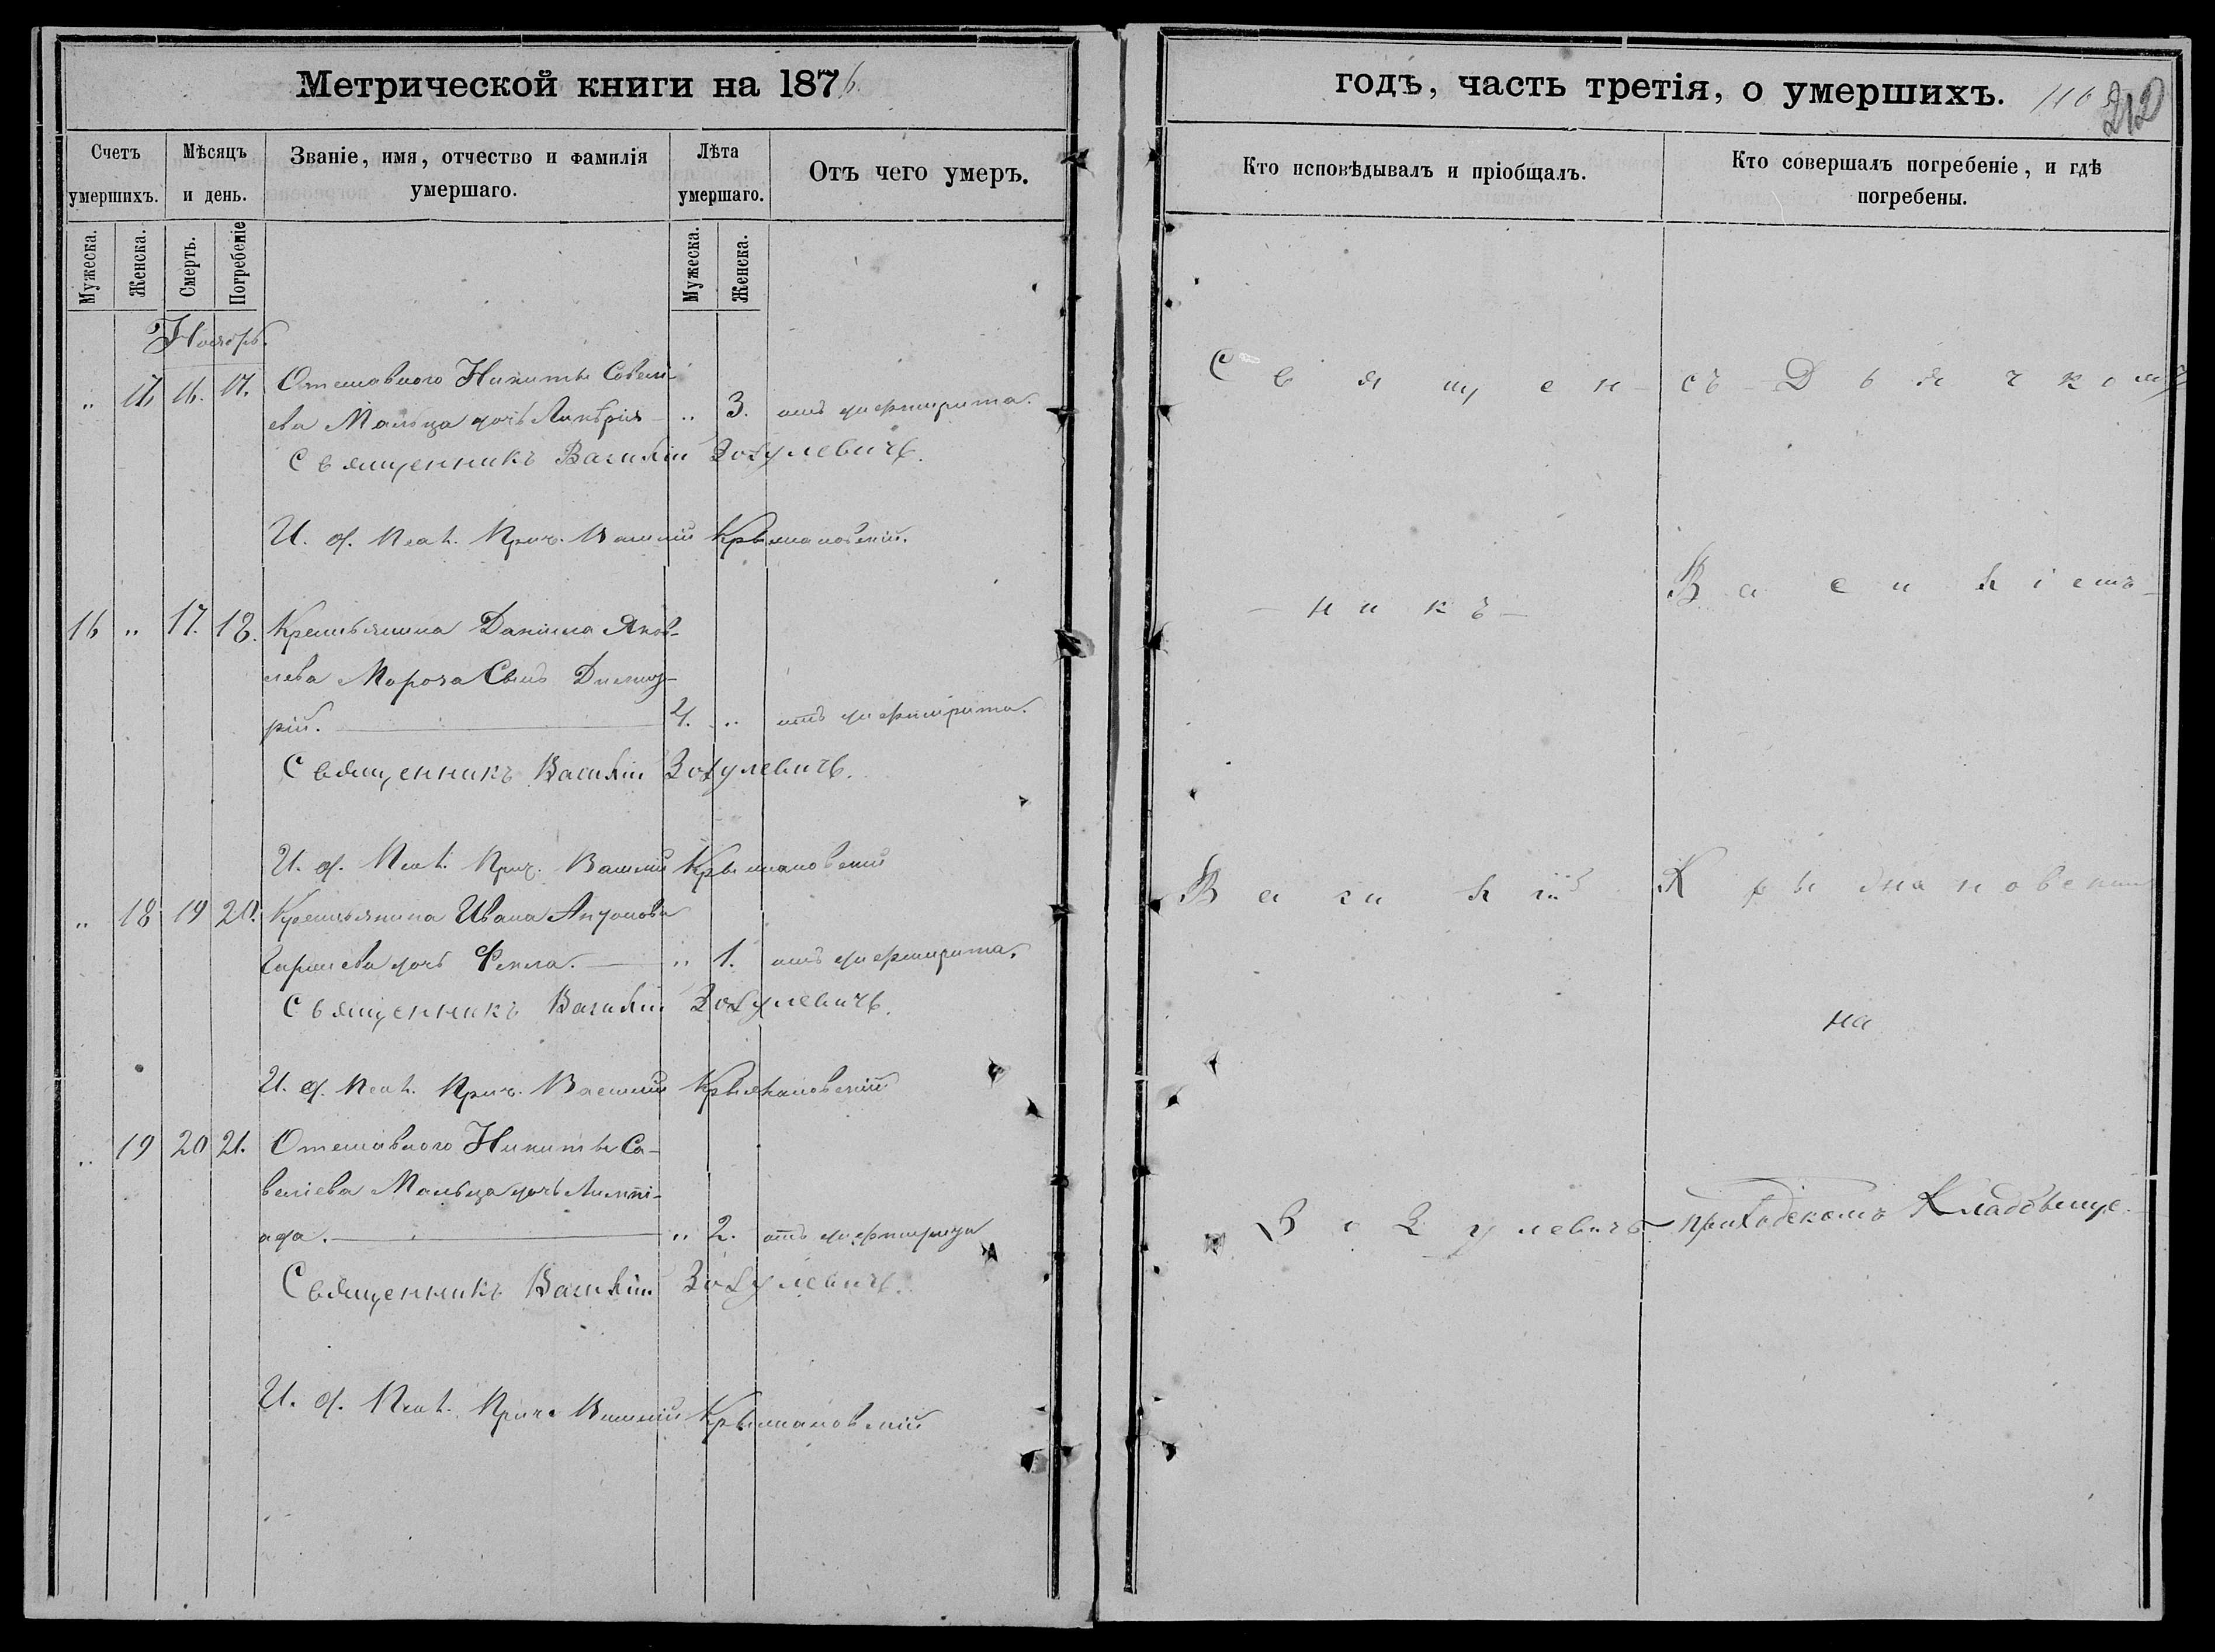 Метрической книги на 1876
Счетъ умершихъ.
Мѣсяцъ и день.
Званіе, имя, отчество и фамилія умершаго.
Лѣта умершаго.
Отъ чего умеръ.
Мужеска.
Женска.
Смерть.
Погребеніе
Мужеска.
Женска.
Ноябрь.
„ 17. 16. 17. Отставного Никиты Савелі-
ева Мальца дочь „ 3. отъ дифтирита.
Священникъ Василій Зозулевичъ.
И. д. Псал. Прич. Василій Крыжановскій.
16 „ 17. 18. Крестьянина Даніила Яков-
лева Мороза Сынъ Димит-
рій. 4. „ отъ дифтирита.
Священникъ Василій Зозулевичъ.
И. д. Псал. Прич. Василій Крыжановскій
„ 18 19 20. Крестьянина Ивана Антонова
дочь Фекла. „ 1. отъ дифтирита.
Священникъ Василій Зозулевичъ.
И. д. Псал. Прич. Василій Крыжановскій
„ 19 20 21. Отставного Никиты Са-
веліева Мальца дочь Олимпі-
ада. „ 2. отъ дифтирита
Священникъ Василій Зозулевичъ.
И. д. Псал. Прич. Василій Крыжановскій
годъ, часть третія, о умершихъ. 116 212
Кто исповѣдывалъ и пріобщалъ.
Кто совершалъ погребеніе, и гдѣ погребены.
Священ-
-никъ-
Василій
Зозулевичъ
съ Дьячкомъ
Василіемъ
Крыжановскимъ
на
приходскомъ Кладбищѣ.